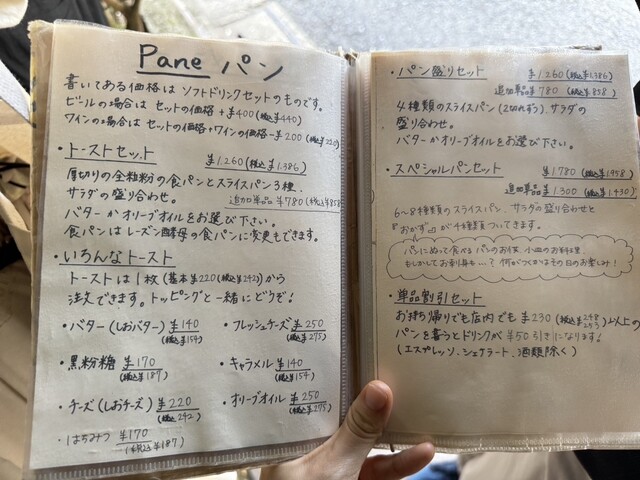 Pane パン
書いてある価格は ソフトドリンクセットのものです。
ビールの場合は セットの価格 + ¥400(税込¥440)
ワインの場合は セットの価格+ワインの価格-¥200 (税込¥220)
・トーストセット ¥1.260(税込¥1.386)
厚切りの全粒粉の食パンとスライスパン3種、
サラダの盛り合わせ。 追加単品¥780(税込¥858
バターかオリーブオイルをお選び下さい。
食パンはレーズン酵母の食パンに変更もできます。
・いろんなトースト
トーストは1枚(基本¥220(税込¥242)から
注文できます。トッピングと一緒にどうぞ!
・バター(しおバター) ¥140 (税込¥154)
・フレッシュチーズ ¥250 (税込¥275)
・黒粉糖 ¥170 (税込¥187)
・キャラメル ¥140 (税込¥154)
・チーズ(しおチーズ) ¥220 (税込242)
・オリーブオイル ¥250 (税込¥275)
・はちみつ ¥170 (税込¥187)
・パン盛りセット ¥1.260(税込¥1.386)
追加単品¥780 (税込¥858)
4種類のスライスパン(2切れずつ)、サラダの
盛り合わせ。
バターかオリーブオイルをお選び下さい。
・スペシャルパンセット ¥1.780(税込¥1.958)
追加単品¥1.300(税込¥1.430)
6〜8種類のスライスパン、サラダの盛り合わせと
"おかず"が4種類ついてきます。
パンにぬって食べるパンのお供、小皿のお料理、
もしかしてお刺身も…? 何がつくかはその日のお楽しみ!
・単品割引セット
お持ち帰りでも店内でも ¥230 (税込¥248 253)以上の
パンを買うとドリンクが ¥50引きになります!
(エスプレッソ、シェケラート、酒類除く)